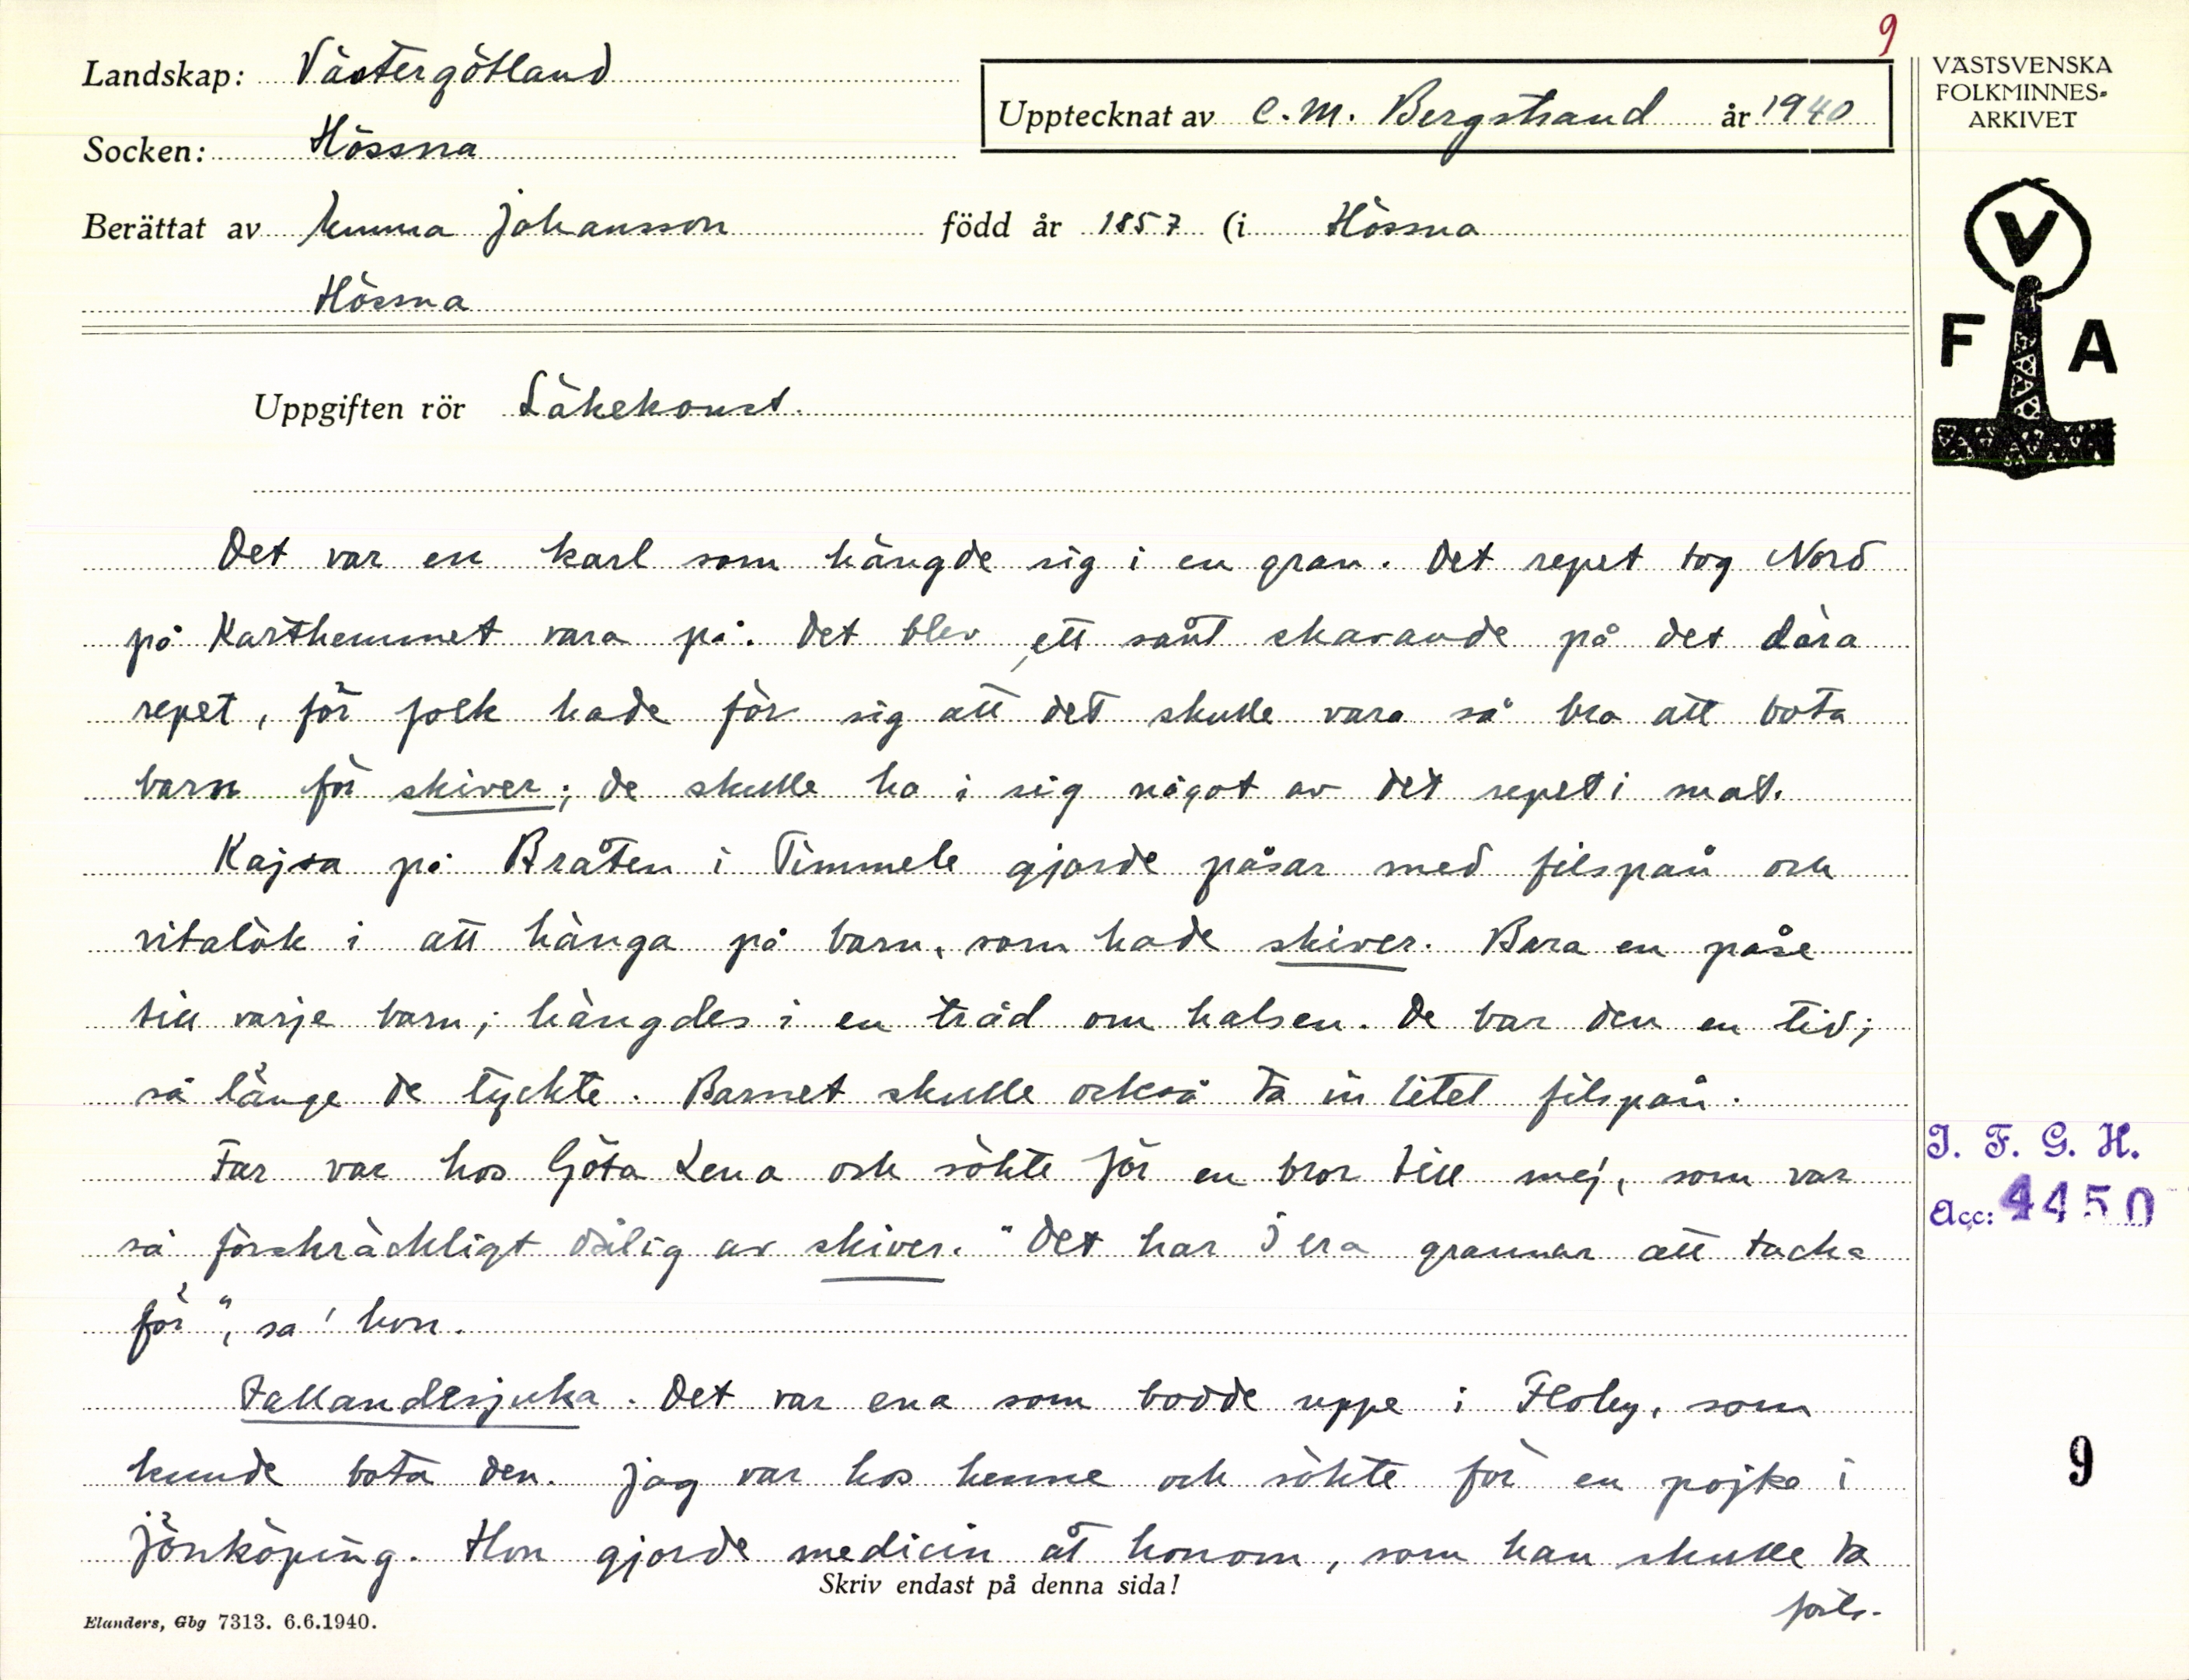 9
Landskap: Västergötland
Upptecknat av C. M. Bergstrand år 1940
VÄSTSVENSKA
FOLKMINNES-
ARKIVET
Socken: Hössna
Berättat av Emma Johansson född år 1857 (i Hössna
Hössna
V
F A
Uppgiften rör Läkekonst.
Det var en karl som hängde sig i en gran. Det repet tog Nord
på Karthemmet vara på. Det blev ett sånt skavande på det dära
repet, för folk hade för sig att det skulle vara så bra att bota
barn för skiver; de skulle ha i sig något av det repet i mat.
Kajsa på Bråten i Timmele gjorde påsar med filspån och
vitalök i att hänga på barn, som hade skiver. Bara en påse
till varje barn; hängdes i en tråd om halsen. De bar den en tid;
så länge de tyckte. Barnet skulle också ta in litet filspån.
Far var hos Göta Lena och sökte för en bror till mej, som var
så förskräckligt dålig av skiver. "Det har I era grannar att tacka
för", sa' hon.
Fallandesjuka. Det var ena som bodde uppe i Floby, som
kunde bota den. Jag var hos henne och sökte för en pojke i
Jönköping. Hon gjorde medicin åt honom, som han skulle ta
forts.
Skriv endast på denna sida!
Elanders, Gbg 7313. 6.6.1940.
I. F. G. H.
Acc: 4450
9